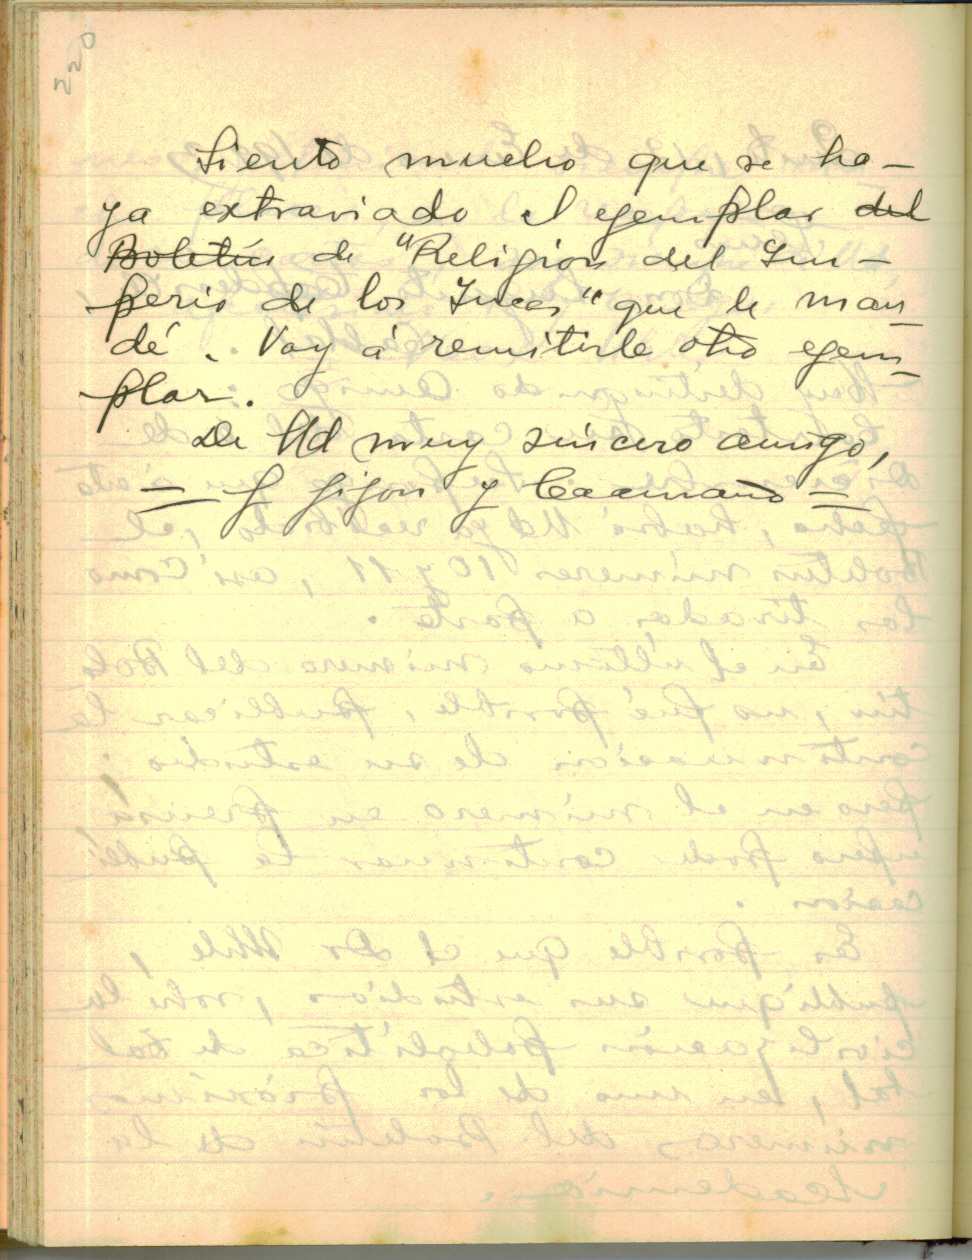 220
Siento mucho que se ha-
ya extraviado el egemplar del
Boletín de "Religión del Im-
perio de los Incas" que le man
dé. Voy á remitirle otro egem
plar.
De Ud muy sincero amigo,
= J Jijon y Caamaño =